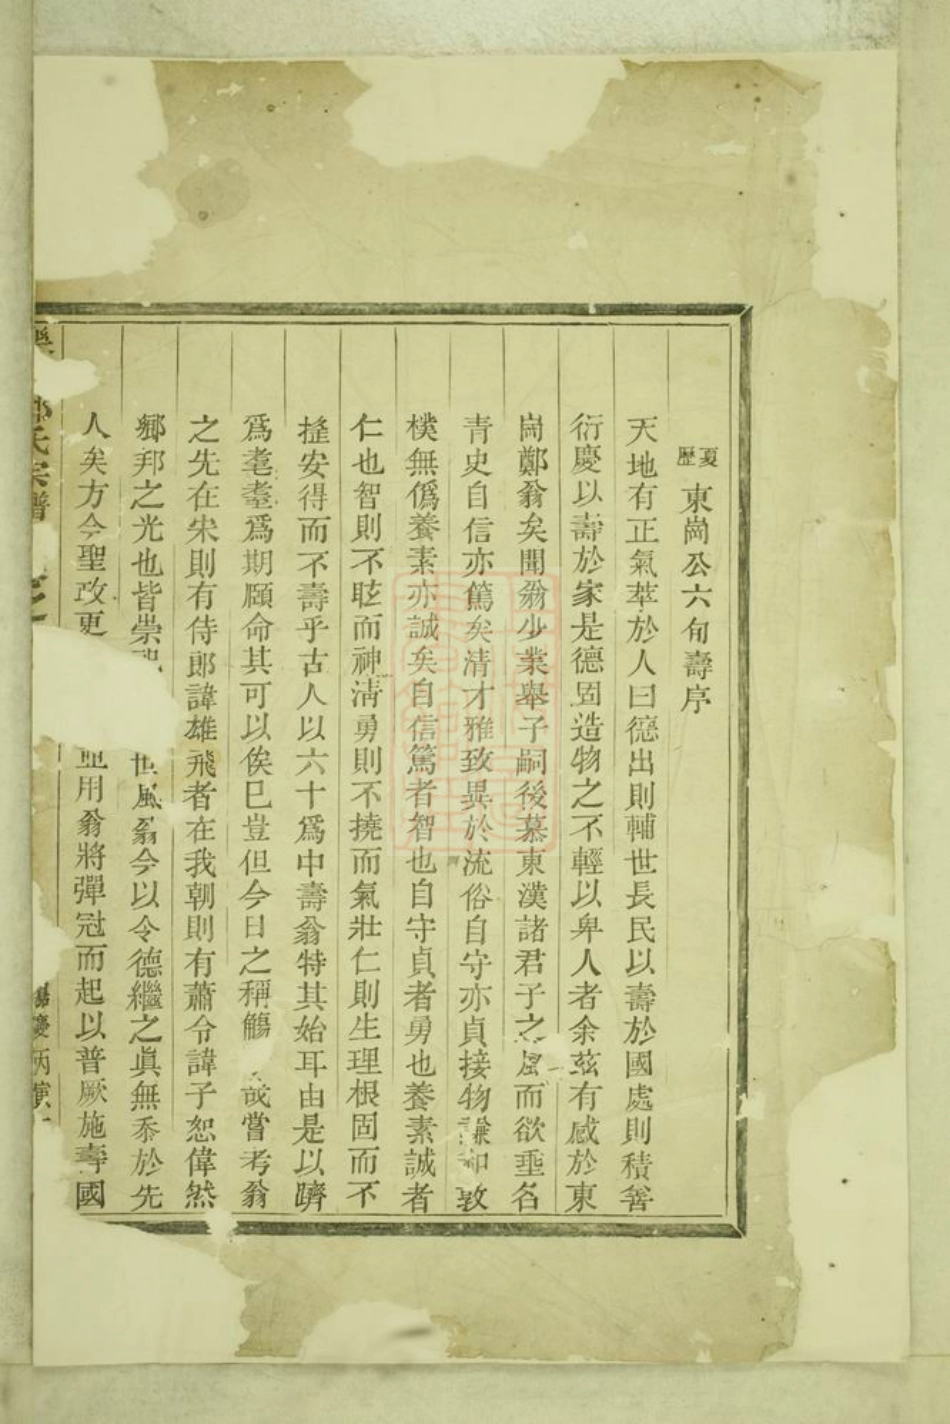 夏歷
東崗公六旬壽序
天地有正氣萃於人曰德出則輔世長民以壽於國處則積善
衍慶以壽於家是德固造物之不輕以畀人者余茲有感於東
崗鄭翁矣聞翁少業舉子嗣後慕東漢諸君子之風而欲垂名
青史自信亦篤矣清才雅致異於流俗自守亦貞接物謙和敦
樸無僞養素亦誠矣自信篤者智也自守貞者勇也養素誠者
仁也智則不眩而神清勇則不撓而氣壯仁則生理根固而不
搖安得而不壽乎古人以六十爲中壽翁特其始耳由是以躋
爲耄耋爲期頤命其可以俟巳豈但今日之稱觴 哉嘗考翁
之先在宋則有侍郎諱雄飛者在我朝則有蕭令諱子恕偉然
鄉邦之光也皆崇祀 世風翁今以令德繼之眞無忝於先
人矣方今聖改更 並用翁將彈冠而起以普厥施壽國
氏宗譜